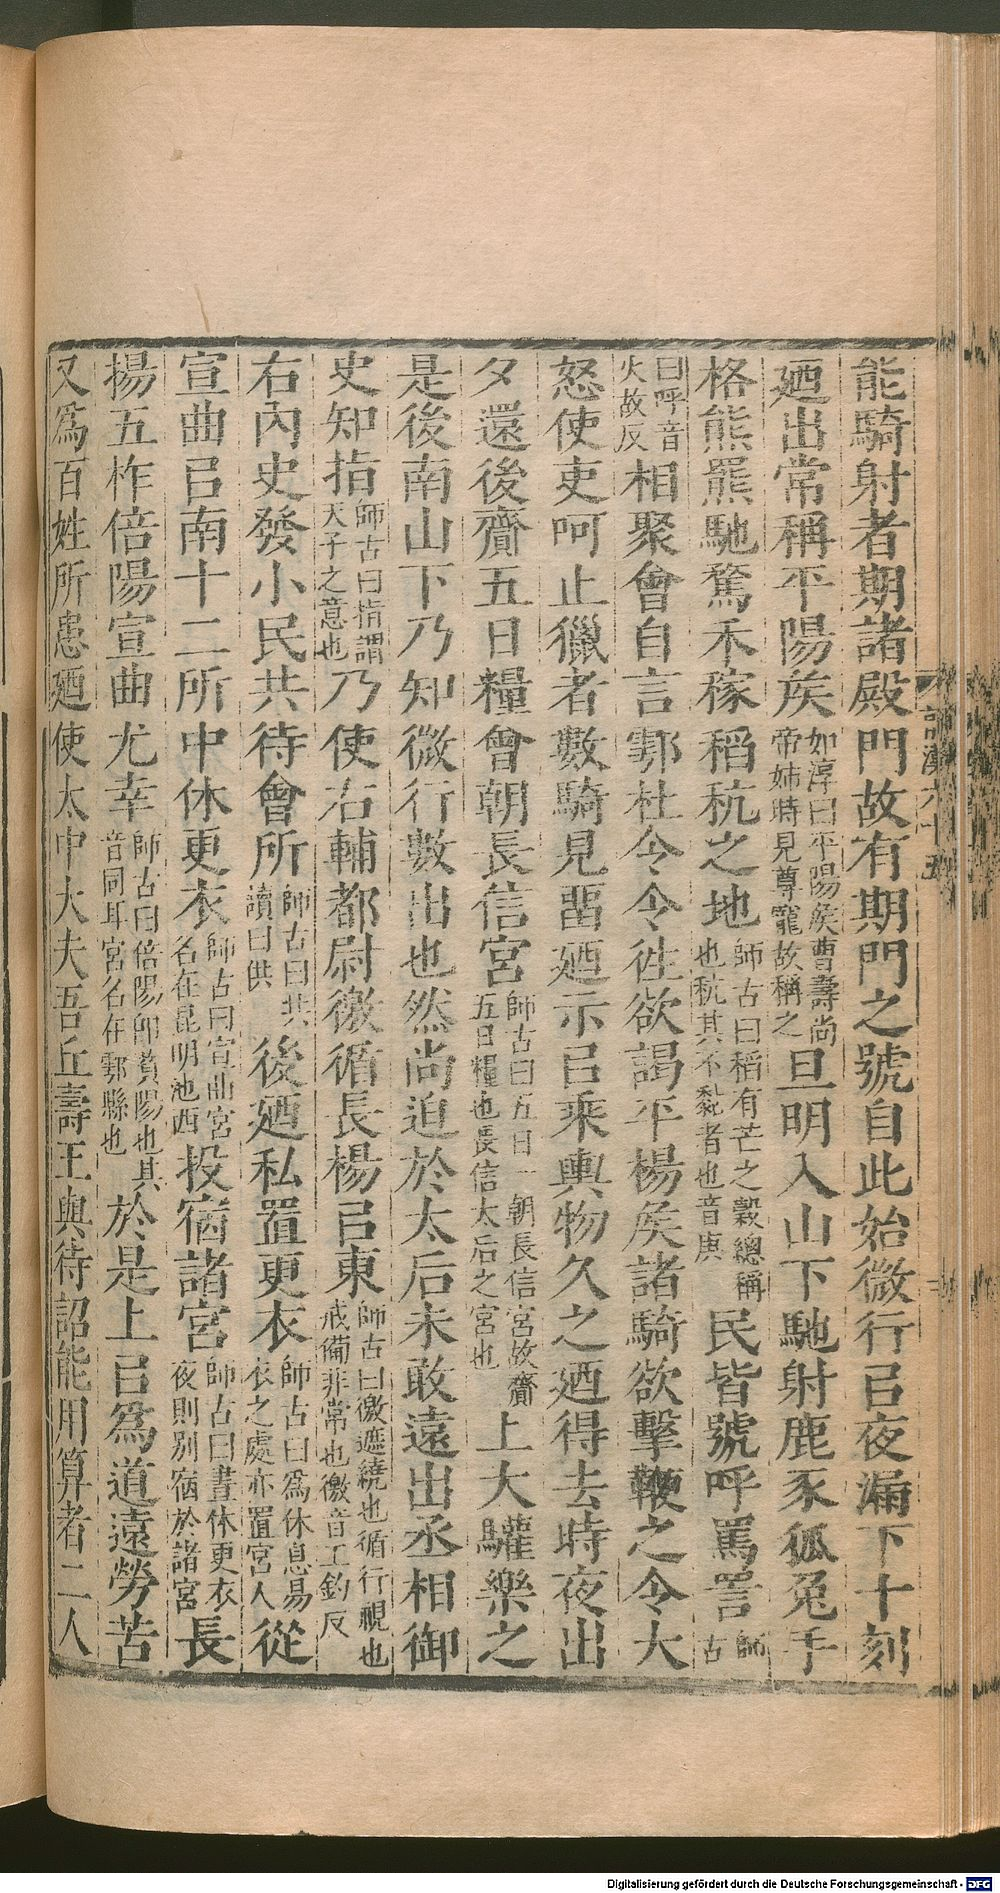 能騎射者期諸殿門故有期門之號自此始微行㠯夜漏下十刻
廼出常稱平陽矦如淳曰平陽矦曹壽尚帝姊時見尊寵故稱之旦明入山下馳射鹿豕狐兔手
格熊羆馳騖禾稼稻秔之地師古曰稻有芒之穀總稱也秔其不黏者也音庚民皆號呼罵詈師古
曰呼音火故反相聚會自言鄠杜令令徃欲謁平楊矦諸騎欲擊鞭之令大
怒使吏呵止獵者數騎見畱廼示㠯乘輿物久之廼得去時夜出
夕還後齎五日糧會朝長信宮師古曰五日一朝長信宮故齎五日糧也長信太后之宮也上大驩樂之
是後南山下乃知微行數出也然尚迫於太后未敢遠出丞相御
史知指師古曰指謂天子之意也乃使右輔都尉徼循長楊㠯東師古曰徼遮繞也循行視也戒備非常也徼音工釣反
右內史發小民共待會所師古曰共讀曰供後廼私置更衣師古曰爲休息易衣之處亦置宮人從
宣曲㠯南十二所中休更衣師古曰宣曲宮名在昆明池西投宿諸宮師古曰晝休更衣夜則別宿於諸宮長
揚五柞倍陽宣曲尤幸師古曰倍陽卽萯陽也其音同耳宮名在鄠縣也於是上㠯爲道遠勞苦
又爲百姓所患廼使太中大夫吾丘壽王與待詔能用算者二人
前漢六十五
Digitalisierung gefördert durch die Deutsche Forschungsgemeinschaft - DFG